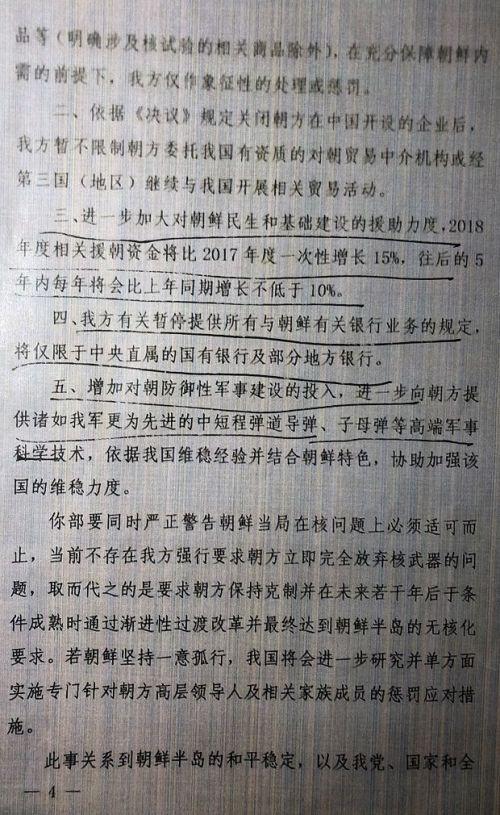 品等（明确涉及核试验的相关商品除外），在充分保障朝鲜内
需的前提下，我方仅作象征性的处理或惩罚。
二、依据《决议》规定关闭朝方在中国开设的企业后，
我方暂不限制朝方委托我国有资质的对朝贸易中介机构或经
第三国（地区）继续与我国开展相关贸易活动。
三、进一步加大对朝鲜民生和基础建设的援助力度，2018
年度相关援朝资金将比 2017 年度一次性增长 15%，往后的 5
年内每年将会比上年同期增长不低于 10%。
四、我方有关暂停提供所有与朝鲜有关银行业务的规定，
将仅限于中央直属的国有银行及部分地方银行。
五、增加对朝防御性军事建设的投入，进一步向朝方提
供诸如我军更为先进的中短程弹道导弹、子母弹等高端军事
科学技术，依据我国维稳经验并结合朝鲜特色，协助加强该
国的维稳力度。
你部要同时严正警告朝鲜当局在核问题上必须适可而
止，当前不存在我方强行要求朝方立即完全放弃核武器的问
题，取而代之的是要求朝方保持克制并在未来若干年后于条
件成熟时通过渐进性过渡改革并最终达到朝鲜半岛的无核化
要求。若朝鲜坚持一意孤行，我国将会进一步研究并单方面
实施专门针对朝方高层领导人及相关家族成员的惩罚应对措
施。
此事关系到朝鲜半岛的和平稳定，以及我党、国家和全
— 4 —